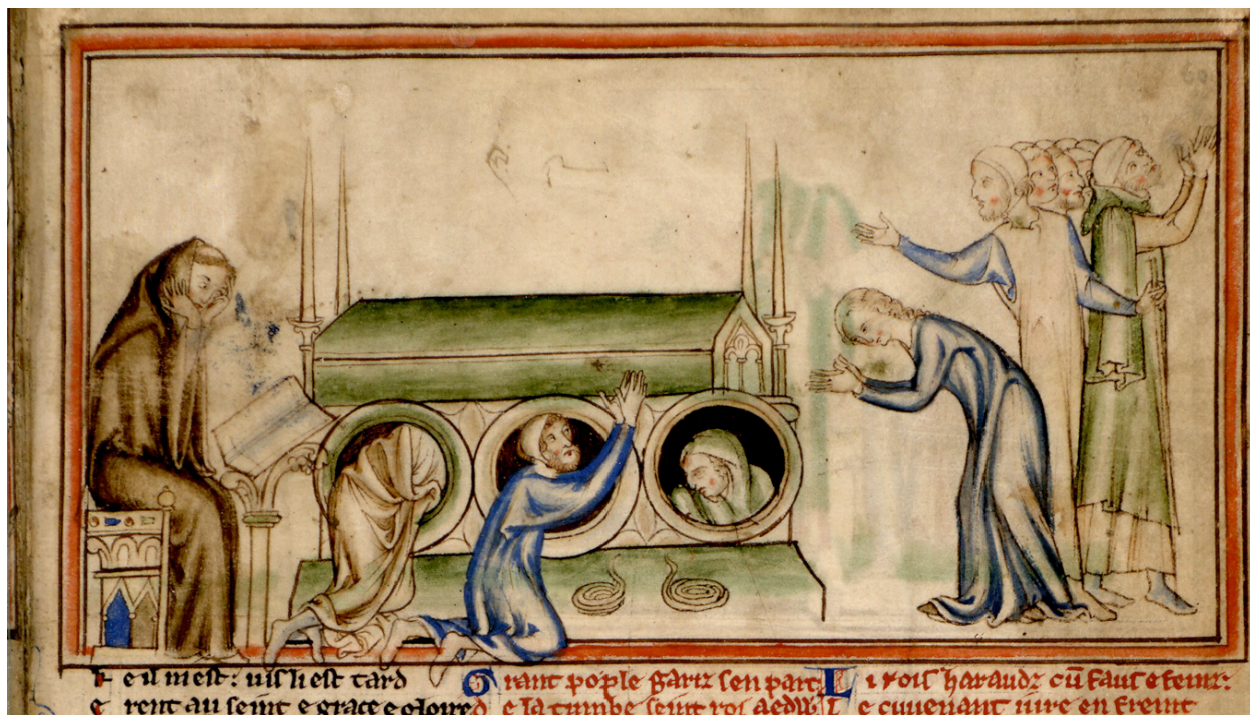 K e il niest: uis li est tard
rent au seint e grace e gloire
G rant pople gariz sen part
e la tumbe seint roi aedw
L i rois haraudz cū faus e feinz:
e cuuenant iure en freint